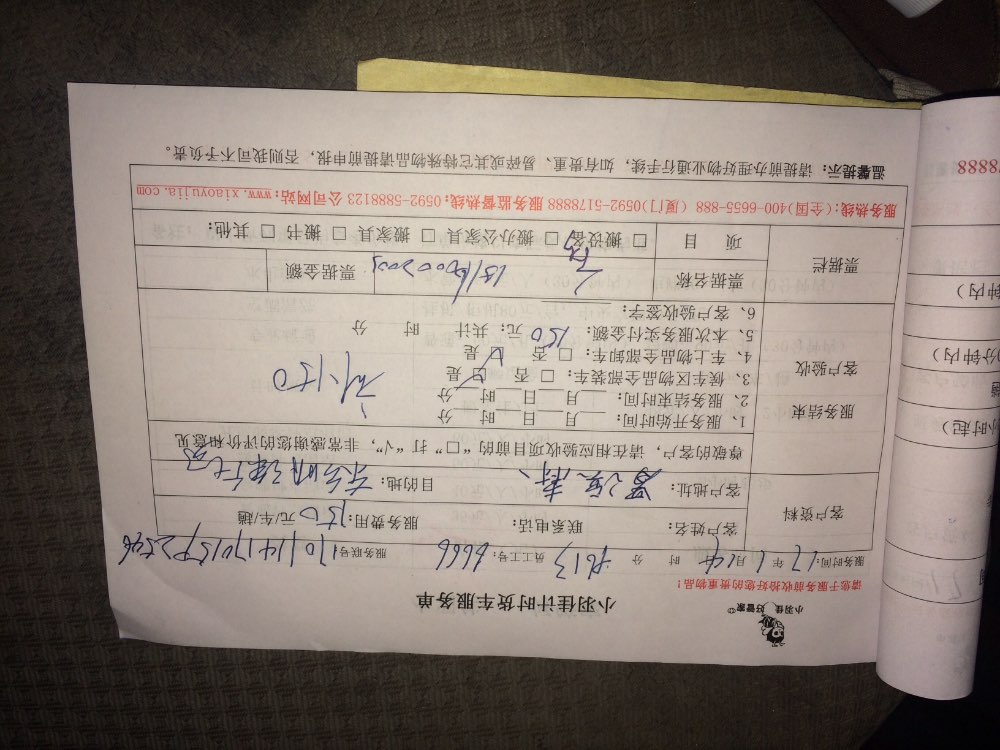 小羽佳 好管家
小羽佳计时货车服务单
请您于服务前收拾好您的贵重物品！
服务时间：17年1月14 时 分 员工工号：6666 服务联号
客户资料
客户姓名： 联系电话： 服务费用：150元/车/趟
客户地址： 目的地：
服务结束
客户验收
尊敬的客户，请在相应验收项目前的“□”打“√”，非常感谢您的评价和意见
1、服务开始时间： 月 日 时 分
2、服务结束时间： 月 日 时 分
3、候车区物品全部装车：□ 否 □ 是
4、车上物品全部卸车：□ 否 □ 是
5、本次服务实付金额：150元；共计 时 分
6、客户验收签字：
票据栏
票据名称 票据金额
项 目 □ 搬设备 □ 搬办公家具 □ 搬家具 □ 搬书 □ 其他：
服务热线：(全国)400-6655-888 (厦门)0592-5178888 服务监督热线：0592-5888123 公司网站：www.xiaoyujia.com
温馨提示：请提前办理好物业通行手续，如有贵重、易碎或其它特殊物品请提前申报，否则我司不予负责。
78888
钟内)
分钟内)
小时起)